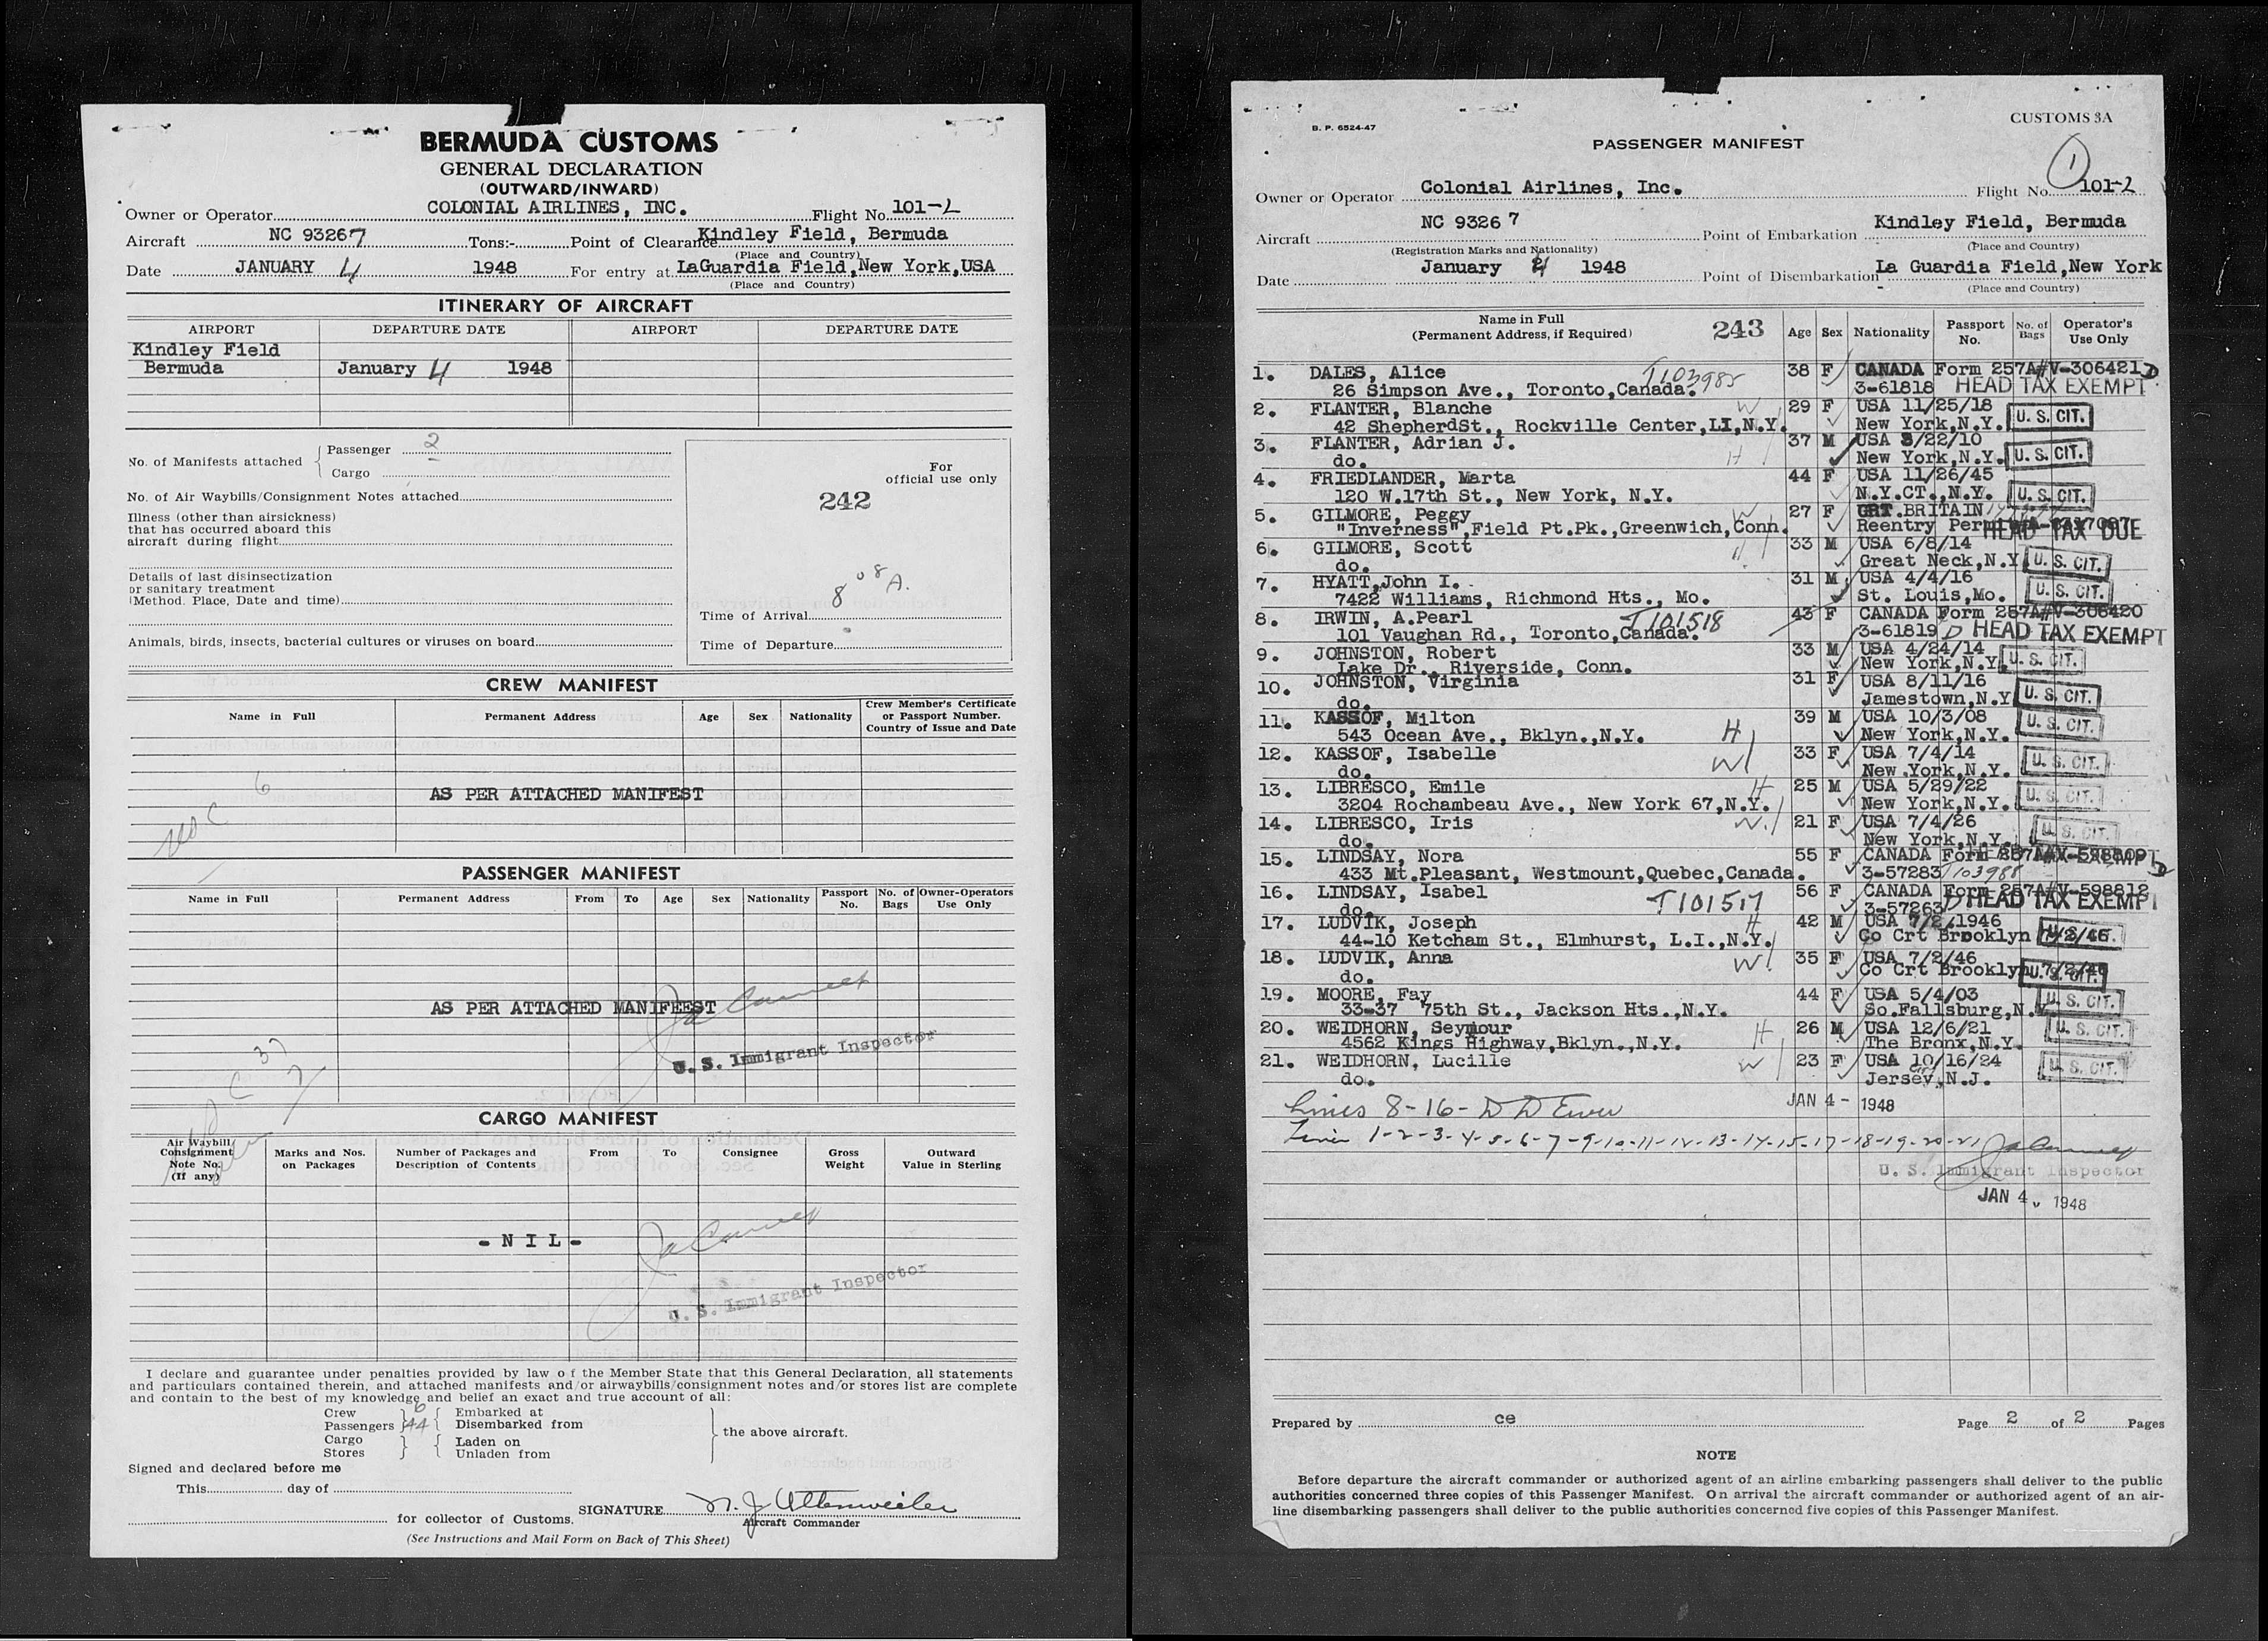 BERMUDA CUSTOMS
GENERAL DECLARATION
(OUTWARD/INWARD)
Owner or Operator COLONIAL AIRLINES, INC. Flight No. 101-2
Aircraft NC 93267 Tons:- Point of Clearance Kindley Field, Bermuda
(Place and Country)
Date JANUARY 4 1948 For entry at LaGuardia Field, New York, USA
(Place and Country)
ITINERARY OF AIRCRAFT
AIRPORT DEPARTURE DATE AIRPORT DEPARTURE DATE
Kindley Field
Bermuda January 4 1948
No. of Manifests attached
Passenger 2
Cargo
For
official use only
No. of Air Waybills/Consignment Notes attached
242
Illness (other than airsickness)
that has occurred aboard this
aircraft during flight
Details of last disinsectization
or sanitary treatment
(Method. Place, Date and time)
8 08 A.
Time of Arrival
Animals, birds, insects, bacterial cultures or viruses on board
Time of Departure
CREW MANIFEST
Name in Full Permanent Address Age Sex Nationality Crew Member's Certificate or Passport Number. Country of Issue and Date
6
AS PER ATTACHED MANIFEST
PASSENGER MANIFEST
Name in Full Permanent Address From To Age Sex Nationality Passport No. No. of Bags Owner-Operators Use Only
AS PER ATTACHED MANIFEEST
U. S. Immigrant Inspector
37
7
CARGO MANIFEST
Air Waybill/Consignment Note No. (If any) Marks and Nos. on Packages Number of Packages and Description of Contents From To Consignee Gross Weight Outward Value in Sterling
- N I L -
U. S. Immigrant Inspector
I declare and guarantee under penalties provided by law of the Member State that this General Declaration, all statements
and particulars contained therein, and attached manifests and/or airwaybills/consignment notes and/or stores list are complete
and contain to the best of my knowledge and belief an exact and true account of all:
Crew 6 Embarked at
Passengers 44 Disembarked from
the above aircraft.
Cargo Laden on
Stores Unladen from
Signed and declared before me
This day of
SIGNATURE N. J. Uttenweiler
for collector of Customs.
Aircraft Commander
(See Instructions and Mail Form on Back of This Sheet)
CUSTOMS 3A
B. P. 6524-47
PASSENGER MANIFEST
1
Owner or Operator Colonial Airlines, Inc. Flight No. 101-2
Aircraft NC 93267 Point of Embarkation Kindley Field, Bermuda
(Registration Marks and Nationality) (Place and Country)
Date January 4 1948 Point of Disembarkation La Guardia Field, New York
(Place and Country)
Name in Full
(Permanent Address, if Required) 243 Age Sex Nationality Passport No. No. of Bags Operator's Use Only
1. DALES, Alice T103985 38 F CANADA Form 257A#V-306421 D
26 Simpson Ave., Toronto,Canada. 3-61818 HEAD TAX EXEMPT
2. FLANTER, Blanche W 29 F USA 11/25/18
42 ShepherdSt., Rockville Center,LI,N.Y. New York,N.Y. U. S. CIT.
3. FLANTER, Adrian J. 37 M USA 3/22/10
do. H New York,N.Y. U. S. CIT.
4. FRIEDLANDER, Marta 44 F USA 11/26/45
120 W.17th St., New York, N.Y. N.Y.CT.,N.Y. U. S. CIT.
5. GILMORE, Peggy W 27 F GRT.BRITAIN
"Inverness",Field Pt.Pk.,Greenwich,Conn. Reentry Permit HEAD TAX DUE
6. GILMORE, Scott 33 M USA 6/8/14
do. H Great Neck,N.Y. U. S. CIT.
7. HYATT,John I. 31 M USA 4/4/16
7422 Williams, Richmond Hts., Mo. St. Louis,Mo. U. S. CIT.
8. IRWIN, A.Pearl T101518 43 F CANADA Form 257A#V-306420
101 Vaughan Rd., Toronto,Canada. 3-61819 D HEAD TAX EXEMPT
9. JOHNSTON, Robert 33 M USA 4/24/14
Lake Dr., Riverside, Conn. New York,N.Y. U. S. CIT.
10. JOHNSTON, Virginia 31 F USA 8/11/16
do. Jamestown,N.Y. U. S. CIT.
11. KASSOF, Milton 39 M USA 10/3/08
543 Ocean Ave., Bklyn.,N.Y. H New York,N.Y. U. S. CIT.
12. KASSOF, Isabelle 33 F USA 7/4/14
do. W New York,N.Y. U. S. CIT.
13. LIBRESCO, Emile H 25 M USA 5/29/22
3204 Rochambeau Ave., New York 67,N.Y. New York,N.Y. U. S. CIT.
14. LIBRESCO, Iris W. 21 F USA 7/4/26
do. New York,N.Y. U. S. CIT.
15. LINDSAY, Nora 55 F CANADA Form 257A#V-598809
433 Mt.Pleasant, Westmount,Quebec,Canada. 3-57283 T103988 D
16. LINDSAY, Isabel 56 F CANADA Form 257A#V-598812
do. T101517 3-57263 D HEAD TAX EXEMPT
17. LUDVIK, Joseph H 42 M USA 7/2/1946
44-10 Ketcham St., Elmhurst, L.I.,N.Y. Co Crt Brooklyn 7/2/46 U. S. CIT.
18. LUDVIK, Anna W 35 F USA 7/2/46
do. Co Crt Brooklyn 7/2/46 U. S. CIT.
19. MOORE, Fay 44 F USA 5/4/03
33-37 75th St., Jackson Hts.,N.Y. So.Fallsburg,N.Y. U. S. CIT.
20. WEIDHORN, Seymour H 26 M USA 12/6/21
4562 Kings Highway,Bklyn.,N.Y. The Bronx,N.Y. U. S. CIT.
21. WEIDHORN, Lucille W 23 F USA 10/16/24
do. Jersey City,N.J. U. S. CIT.
JAN 4 - 1948
Lines 8-16-
Lines 1-2-3-4-5-6-7-9-10-11-12-13-14-15-17-18-19-20-21
U. S. Immigrant Inspector
JAN 4, 1948
Prepared by ce Page 2 of 2 Pages
NOTE
Before departure the aircraft commander or authorized agent of an airline embarking passengers shall deliver to the public
authorities concerned three copies of this Passenger Manifest. On arrival the aircraft commander or authorized agent of an air-
line disembarking passengers shall deliver to the public authorities concerned five copies of this Passenger Manifest.